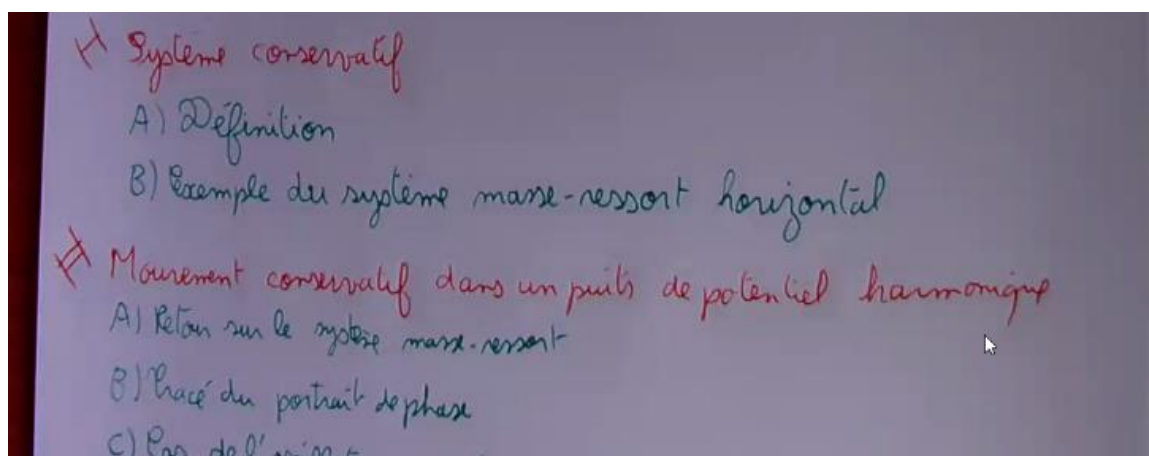 I Système conservatif
A) Définition
B) Exemple du système masse-ressort horizontal
II Mouvement conservatif dans un puits de potentiel harmonique
A) Retour sur le système masse-ressort
B) Tracé du portrait de phase
C) Cas de l'